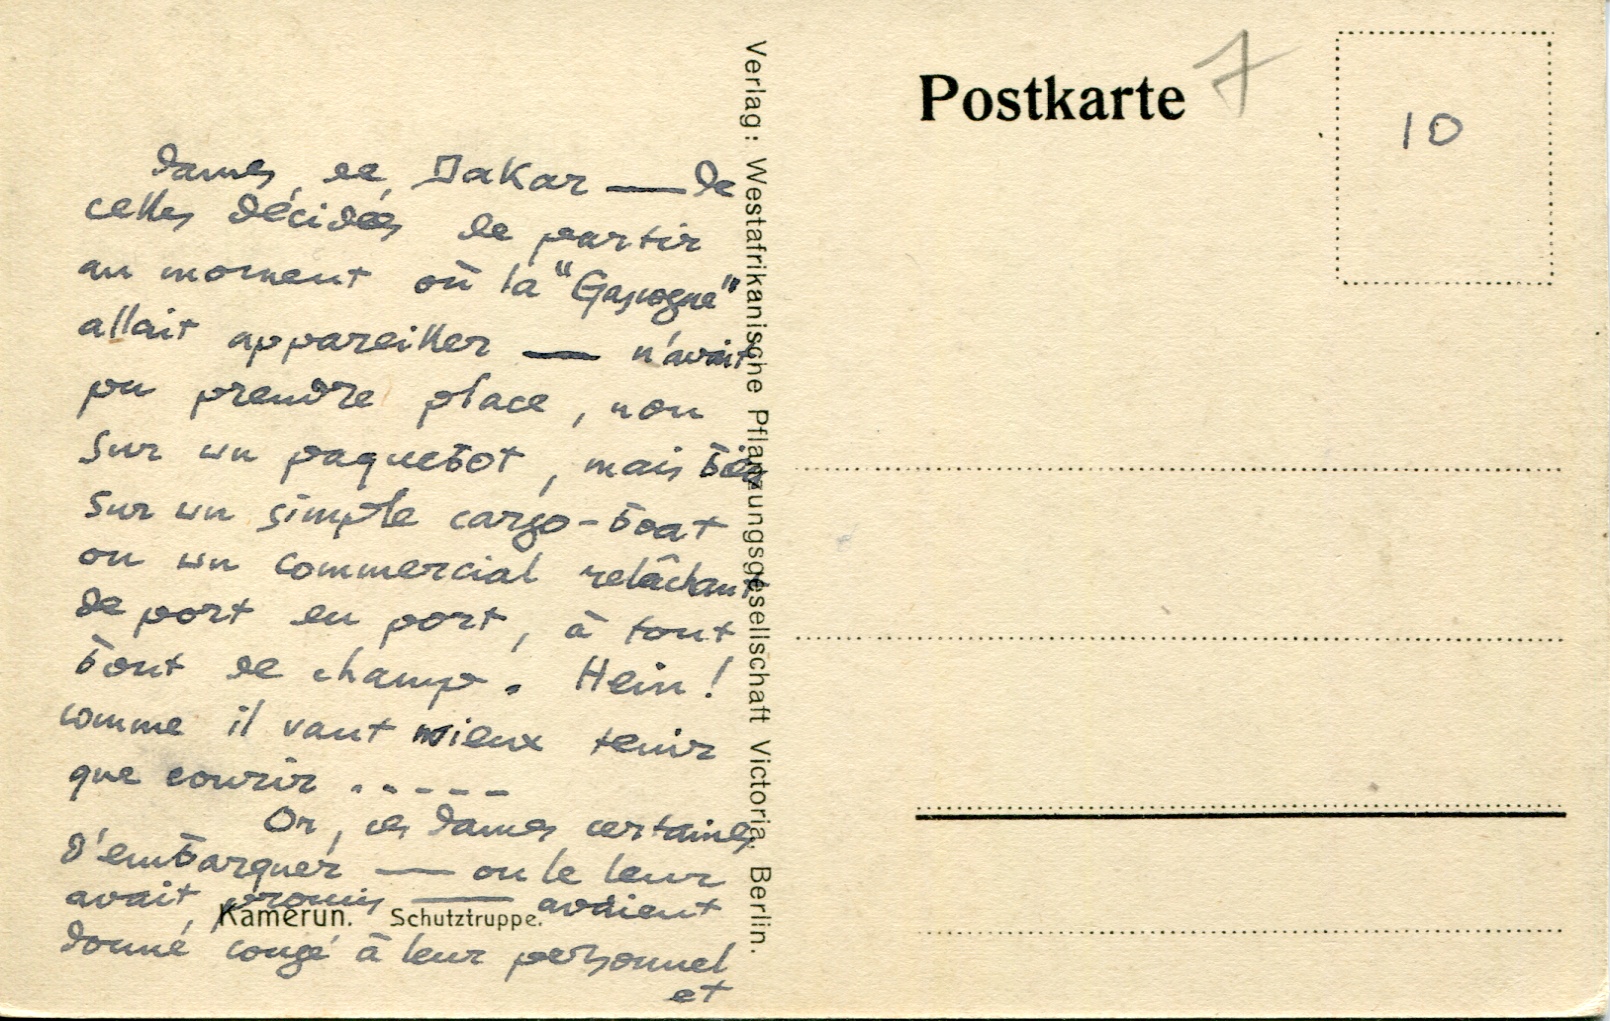 dames de Dakar — de
celles décidées de partir
au moment où la "Gascogne"
allait appareiller — n'avait
pu prendre place, non
sur un paquebot, mais bien
sur un simple cargo-boat
ou un commercial relâchant
de port en port, à tout
bout de champ. Hein!
comme il vaut mieux tenir
que courir . . - - -
Or, ces dames certaines
d'embarquer — on le leur
avait promis — avaient
donné congé à leur personnel
et
Kamerun. Schutztruppe.
Verlag: Westafrikanische Pflanzungsgesellschaft Victoria, Berlin.
Postkarte
7
10